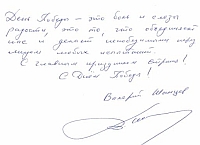 День Победы – это боль и слезы
радости, это то, что объединяет
нас и делает непобедимыми перед
лицом любых испытаний.
С главным праздником страны!
С Днем Победы!
Валерий